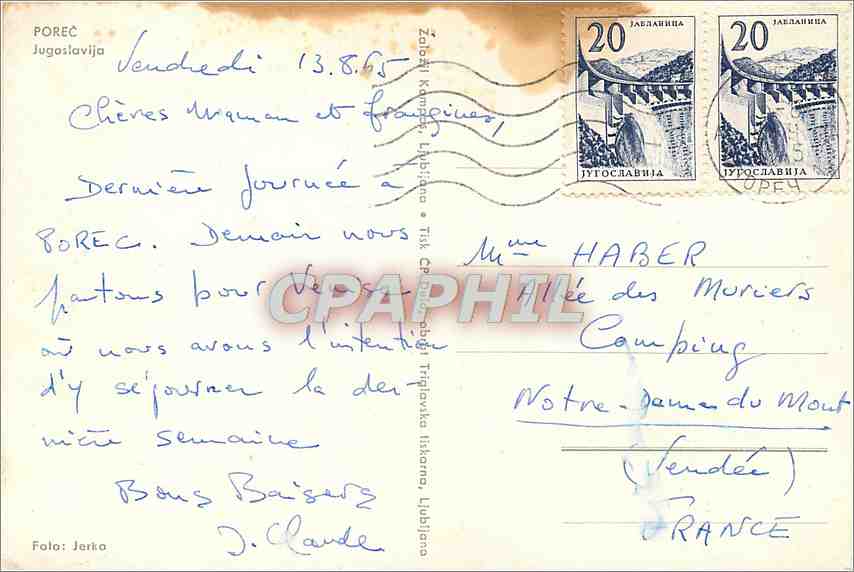 POREČ
Jugoslavija
Vendredi 13.8.65
Chères Maman et frangines,
Dernière journée à
POREC. Demain nous
partons pour Venise
où nous avons l'intention
d'y séjourner la der-
nière semaine
Bons Baisers
J. Claude
Foto: Jerko
Založil Kompas, Ljubljana • Tisk ČP Delo, obrat Triglavska tiskarna, Ljubljana
20 ЈАБЛАНИЦА
ЈУГОСЛАВИЈА
20 ЈАБЛАНИЦА
ЈУГОСЛАВИЈА
Mme HABER
Allée des Muriers
Camping
Notre-Dame du Mont
(Vendée)
FRANCE
CPAPHIL